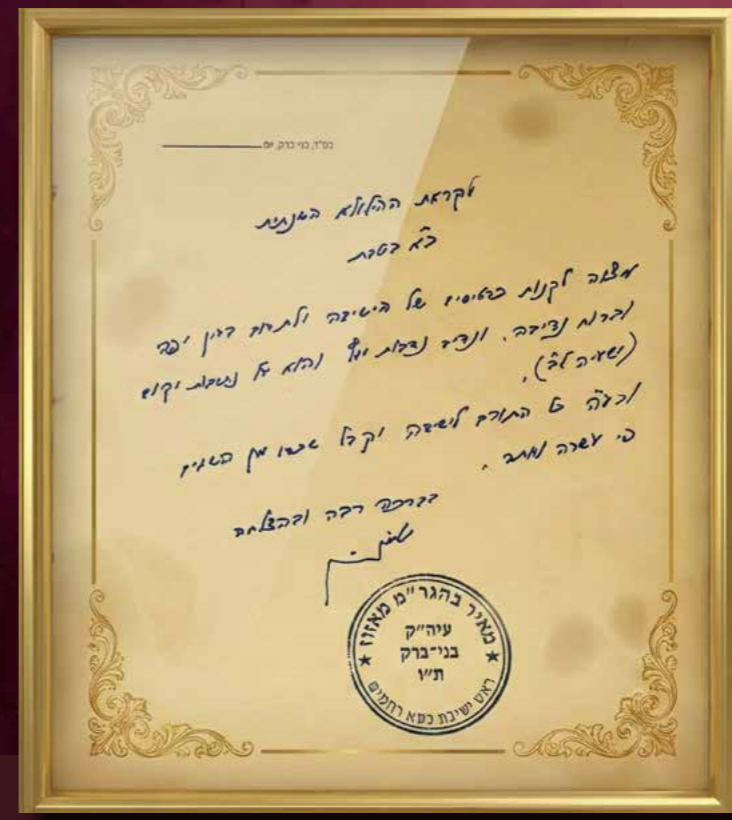 בס"ד, בני ברק, יום
לקראת ההילולא השנתית
כ"א בטבת
מצוה לקנות כרטיסים של הישיבה ולתרום בעין יפה
וברוח נדיבה. ונדיב נדבות יעץ והוא על נדיבות יקום
(ישעיה לב).
ובע"ה כל התורם לישיבה יקבל שכרו מן השמים
פי עשרה ויותר.
בברכה רבה ובהצלחה
מאיר בהגר"מ מאזוז
עיה"ק
בני־ברק
ת"ו
ראש ישיבת כסא רחמים